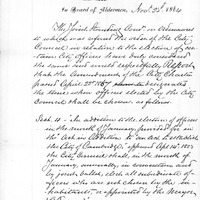 In Board of Aldermen, Nov. 23d. 1864
The Joint Standing Com. on Ordinances
to which was referred the order of the City
Council in relation to the election of
City officers have duly considered
the same and would respectfully Report
that the amendment of the City Charter
passed April 20. designated
the time when officers elected by the City
Council shall be chosen as follows:
Sect. In addition to the election of officers
in the month of January, provided for in
the "Act in Addition to an Act to establish
the City of Cambridge," approved Apr.
the City Council shall, in the month of
January, annually, in convention and
by joint ballot, elect all subordinate
officers who are not chosen by the in-
habitants, or appointed by the Mayor